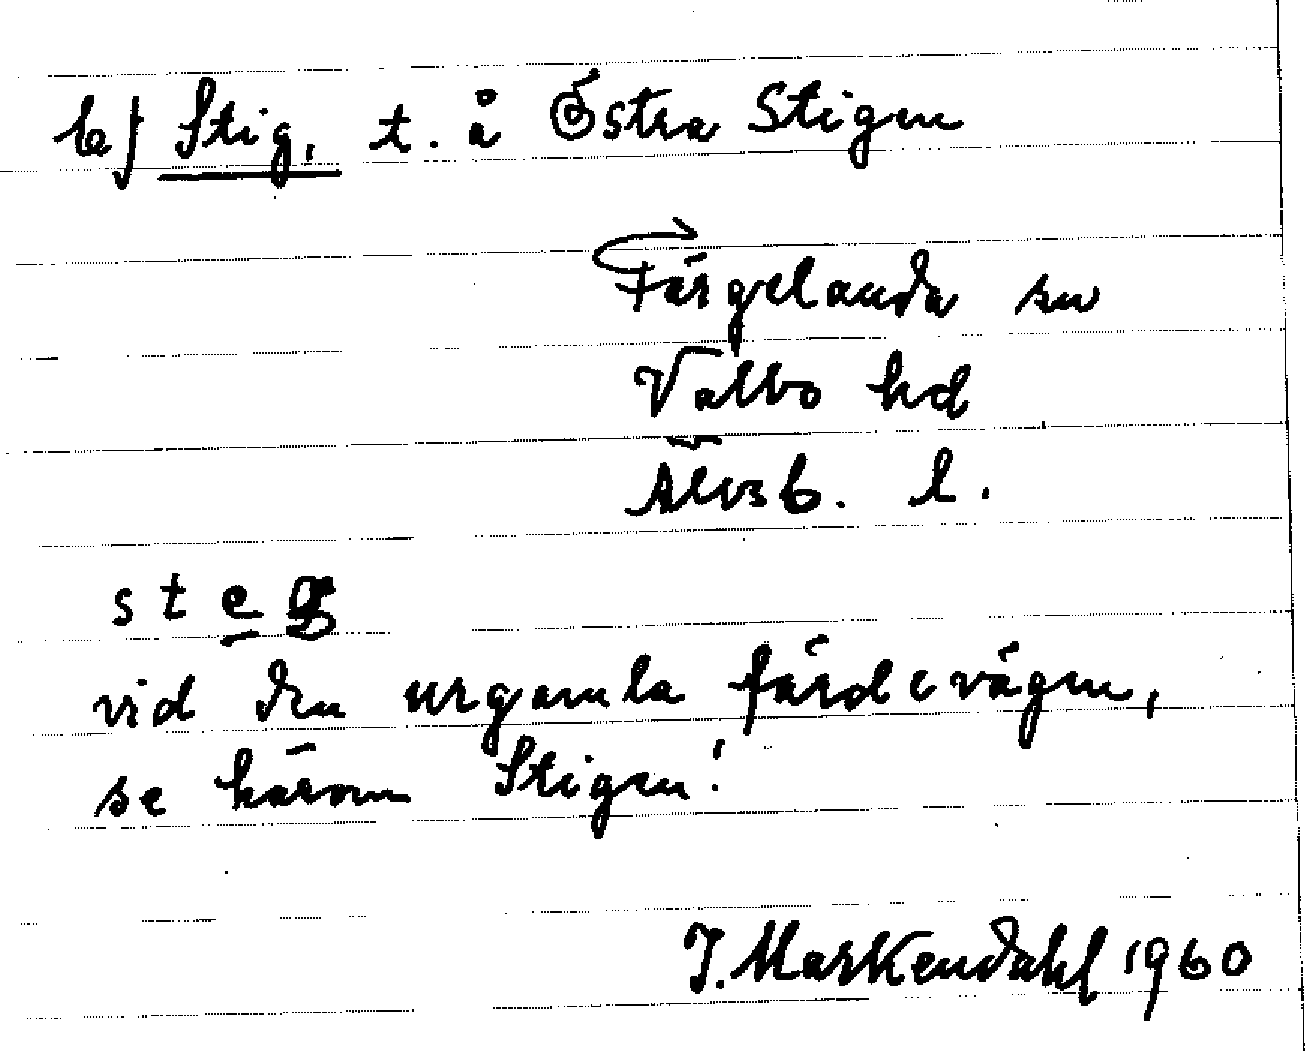 b) Stig, t. å Östra Stigen
Färgelanda sn
Valbo hd
Älvsb. l.
steg
vid den urgamla färdevägen,
se härom Stigen!
J. Markendahl 1960